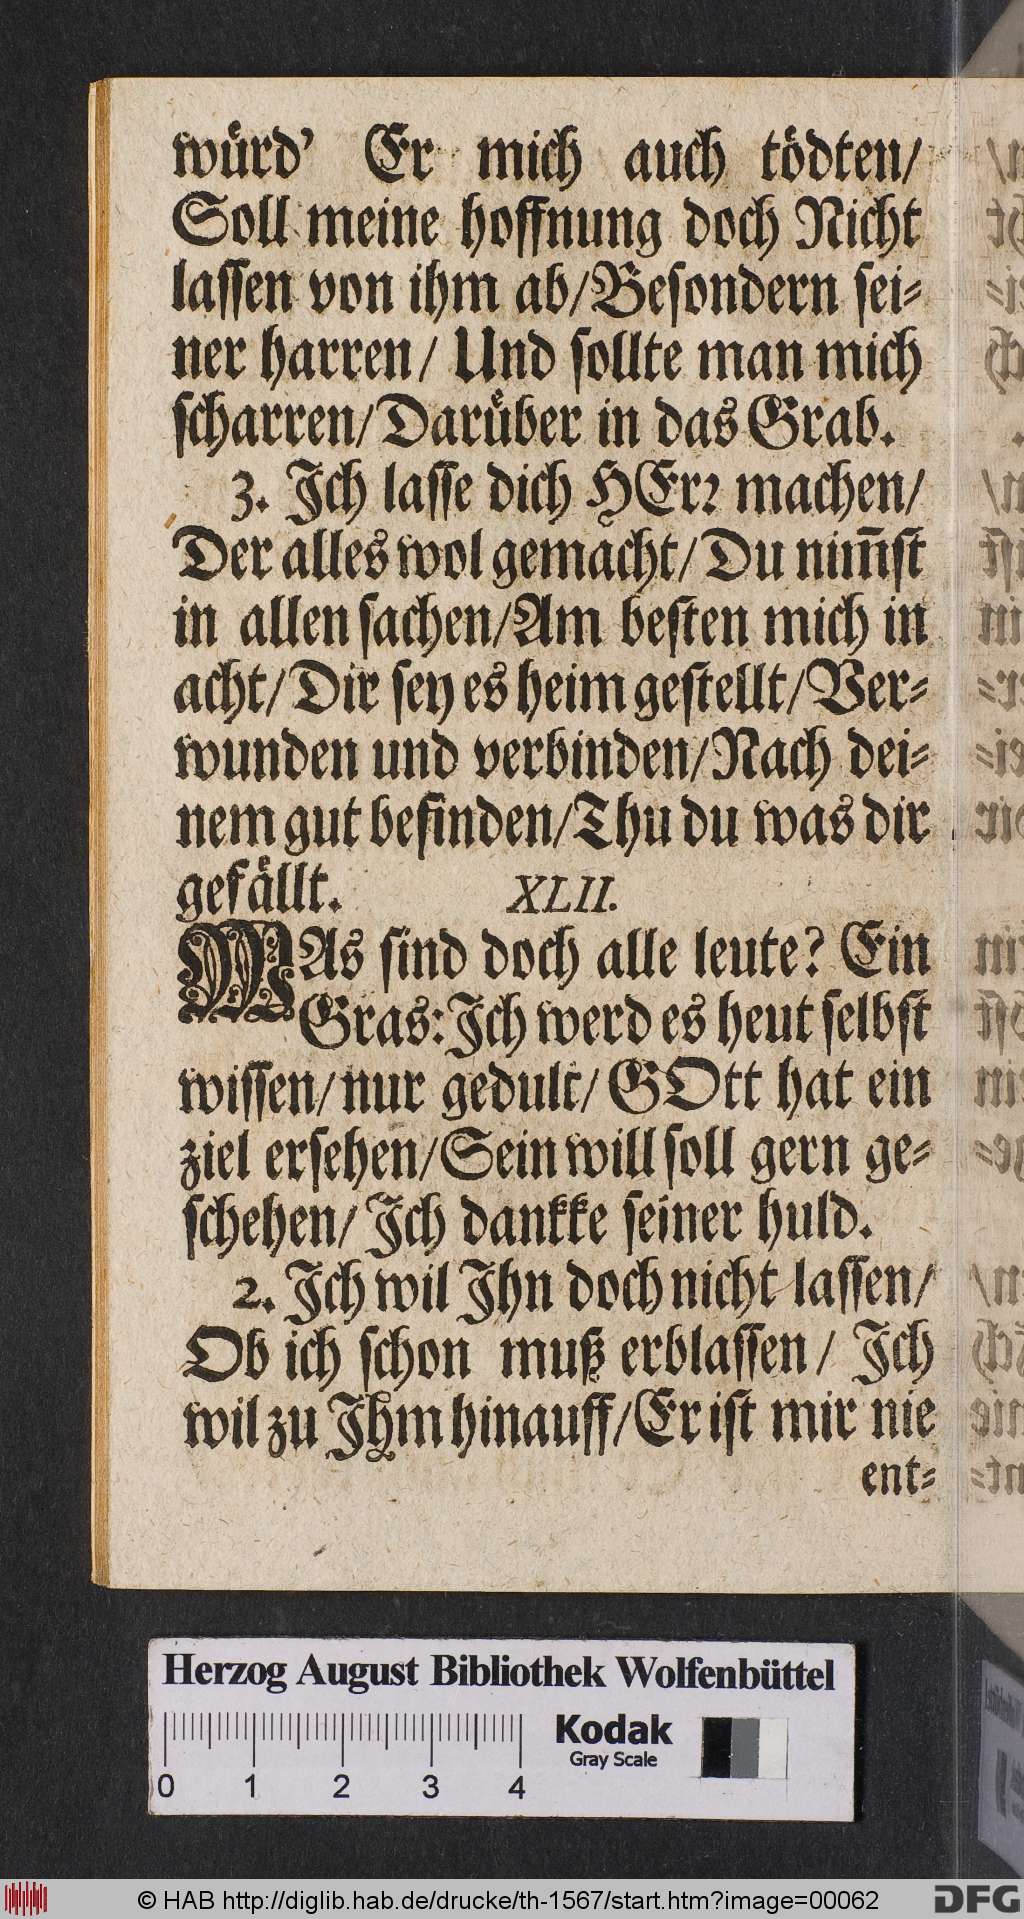 wuͤrd' Er mich auch toͤdten/
Soll meine hoffnung doch Nicht
lassen von ihm ab/Besondern sei-
ner harren/ Und sollte man mich
scharren/Daruͤber in das Grab.
3. Ich lasse dich HErꝛ machen/
Der alles wol gemacht/Du nim̃st
in allen sachen/Am besten mich in
acht/Dir sey es heim gestellt/Ver-
wunden und verbinden/Nach dei-
nem gut befinden/Thu du was dir
gefaͤllt. XLII.
WAs sind doch alle leute? Ein
Gras: Ich werd es heut selbst
wissen/nur gedult/GOtt hat ein
ziel ersehen/Sein will soll gern ge-
schehen/Ich dankke seiner huld.
2. Ich wil Ihn doch nicht lassen/
Ob ich schon muß erblassen/ Ich
wil zu Ihm hinauff/Er ist mir nie
ent-
Herzog August Bibliothek Wolfenbüttel
Kodak
Gray Scale
0 1 2 3 4
© HAB http://diglib.hab.de/drucke/th-1567/start.htm?image=00062
DFG